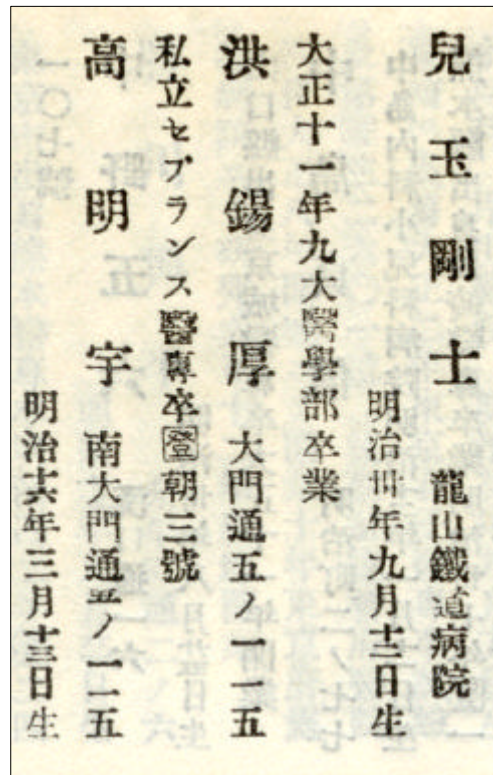 兒玉剛士 龍山鐵道病院
明治卅年九月十二日生
大正十一年九大醫學部卒業
洪錫厚 大門通五ノ一一五
私立セブランス醫專卒登朝三號
高明宇 南大門通五ノ一一五
明治十六年三月十三日生